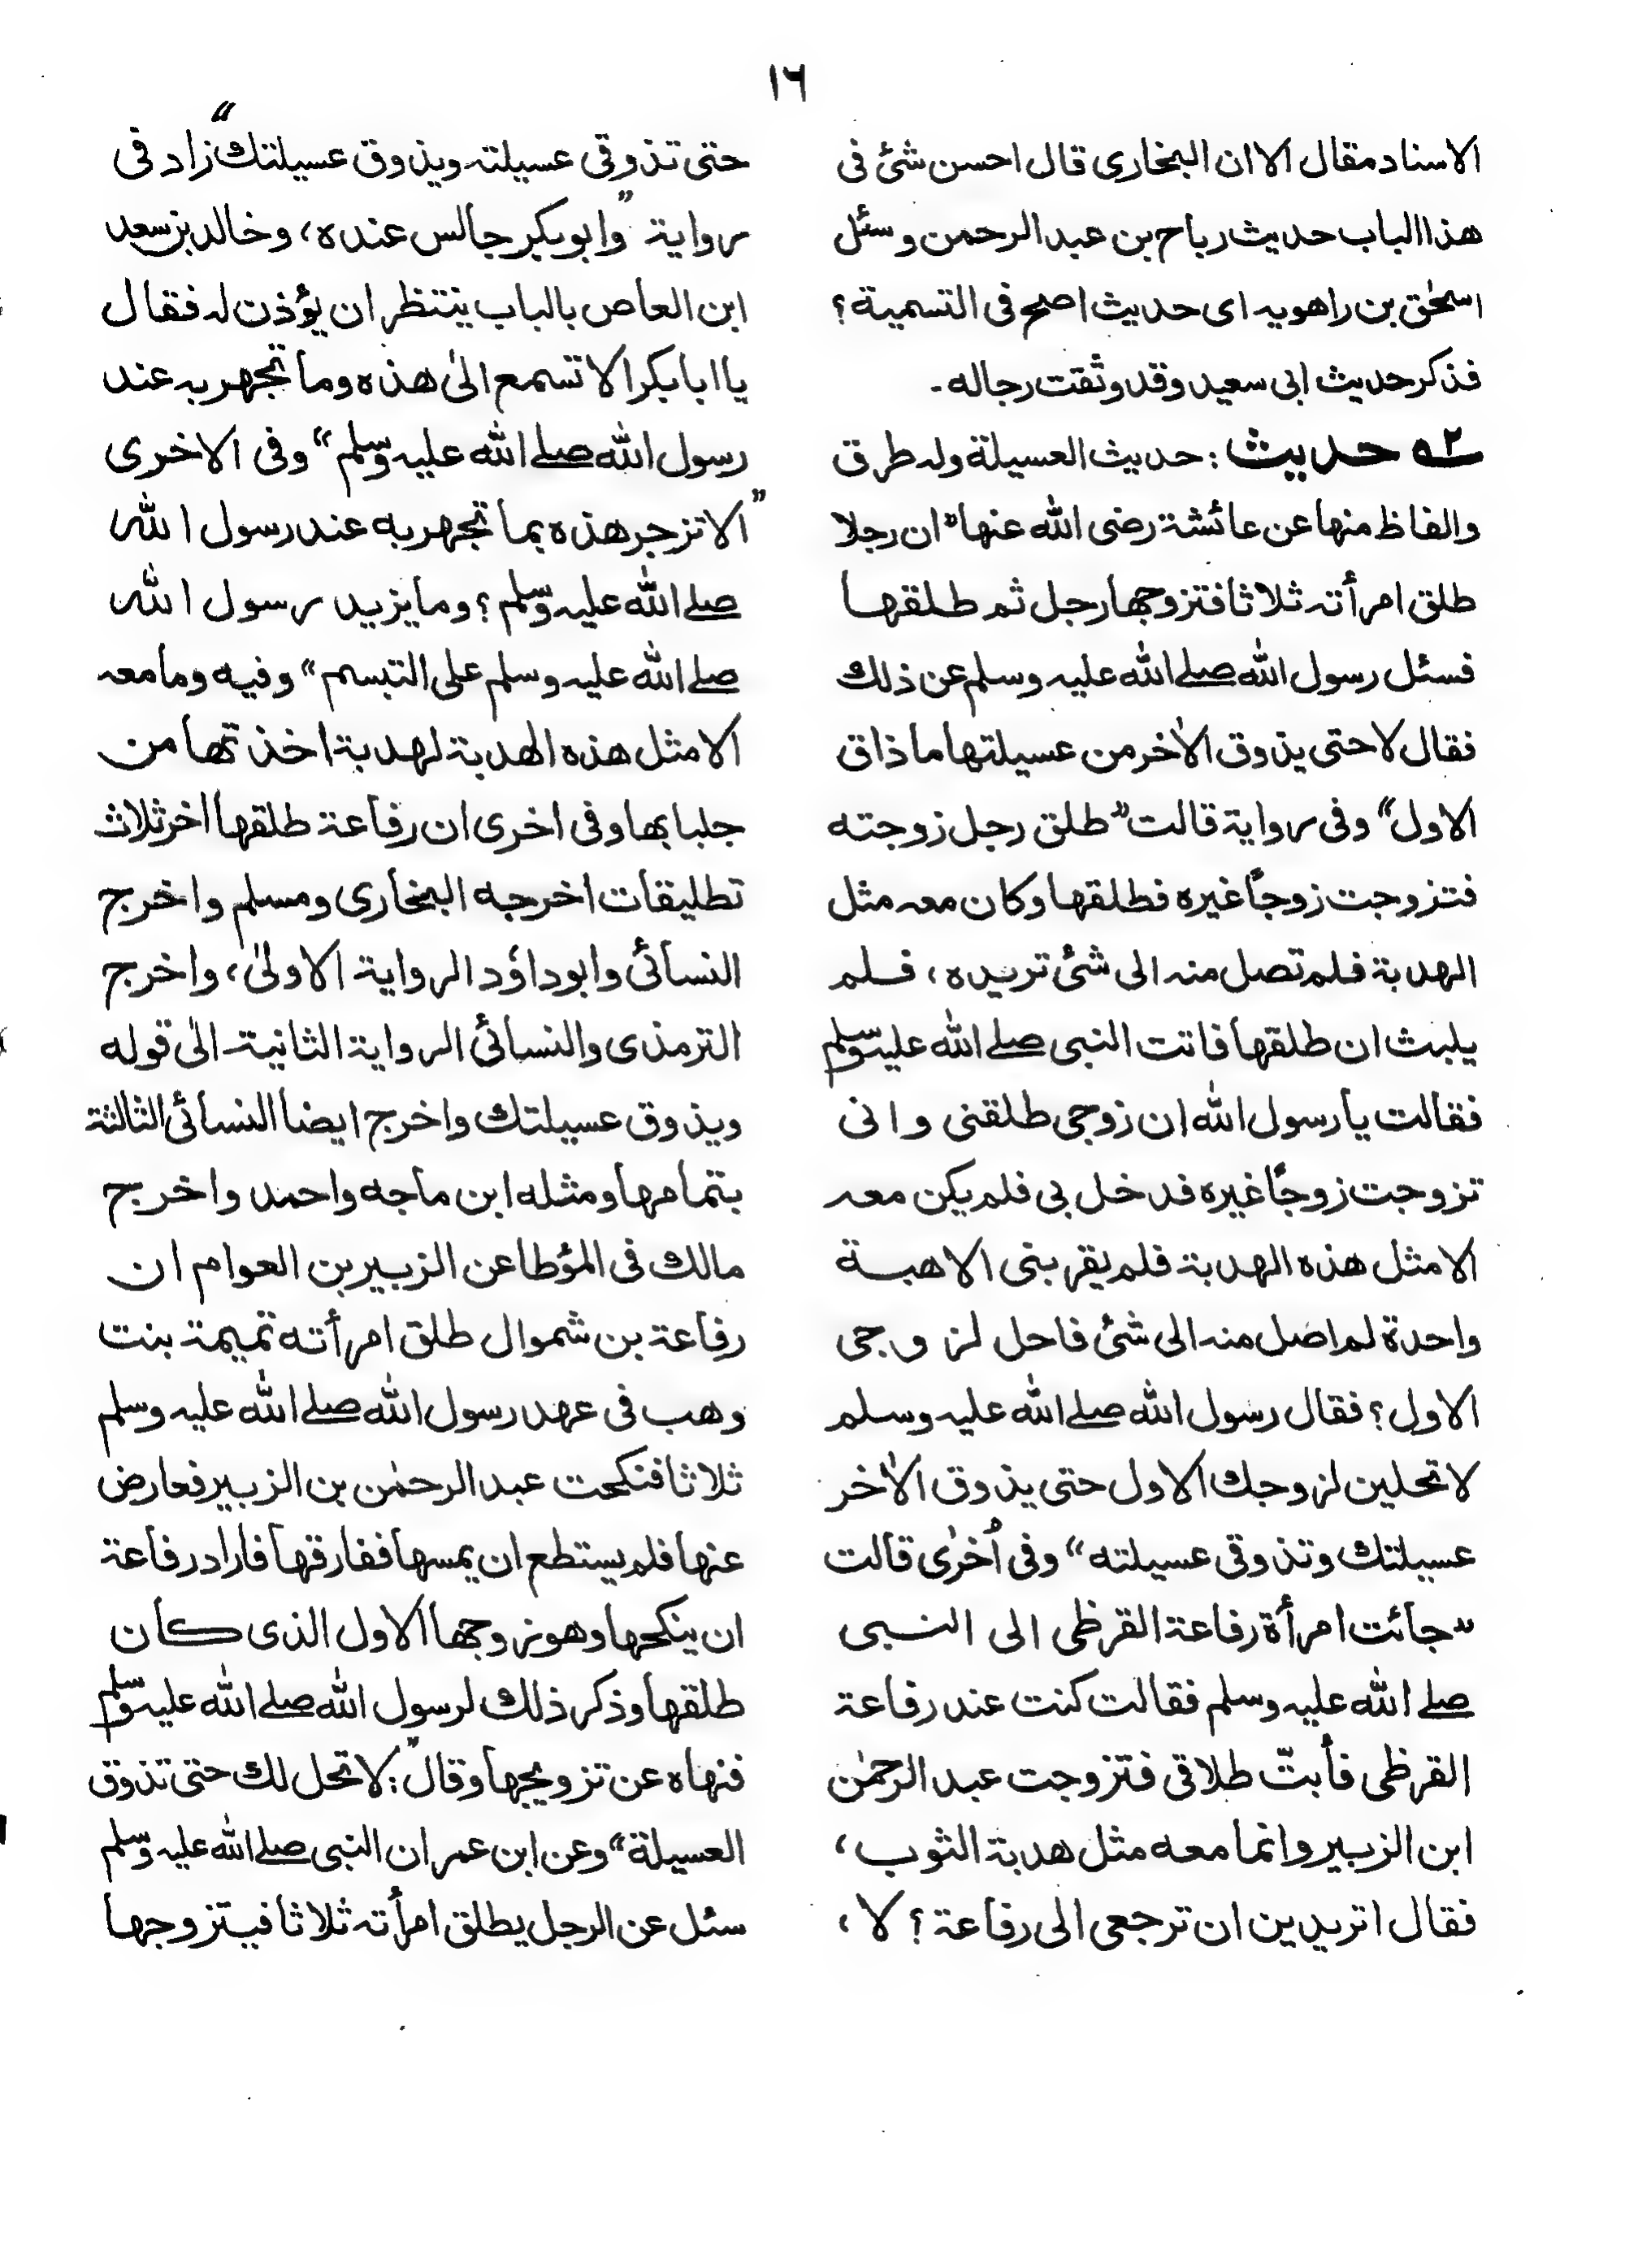 ١٦
الاسناد مقال الا ان البخاری قال احسن شئ فی
هذا الباب حدیث رباح بن عبد الرحمن وسئل
اسحٰق بن راهویه ای حدیث اصح فی التسمیة؟
فذکر حدیث ابی سعید وقد وثقت رجاله۔
٥٢ حدیث: حدیث العسیلة وله طرق
والفاظ منها عن عائشة رضی الله عنها "ان رجلا
طلق امرأته ثلاثا فتزوجها رجل ثم طلقها
فسئل رسول الله صلے الله علیه وسلم عن ذلك
فقال لا حتی یذوق الاٰخر من عسیلتها ما ذاق
الاول" وفی روایة قالت "طلق رجل زوجته
فتزوجت زوجاً غیره فطلقها وکان معه مثل
الهدبة فلم تصل منه الی شئ تریده، فلم
یلبث ان طلقها فاتت النبی صلے الله علیه وسلم
فقالت یا رسول الله ان زوجی طلقنی وانی
تزوجت زوجاً غیره فدخل بی فلم یکن معه
الا مثل هذه الهدبة فلم یقربنی الا هبة
واحدة لم اصل منه الی شئ فاحل لزوجی
الاول؟ فقال رسول الله صلے الله علیه وسلم
لا تحلین لزوجك الاول حتی یذوق الاٰخر
عسیلتك وتذوقی عسیلته" وفی اُخرٰی قالت
"جائت امرأة رفاعة القرظی الی النبی
صلے الله علیه وسلم فقالت کنت عند رفاعة
القرظی فأبتّ طلاقی فتزوجت عبد الرحمٰن
ابن الزبیر وانما معه مثل هدبة الثوب،
فقال اتریدین ان ترجعی الی رفاعة؟ لا،
حتی تذوقی عسیلته ویذوق عسیلتك" زاد فی
روایة "وابوبکر جالس عنده، وخالد بن سعد
ابن العاص بالباب ینتظر ان یؤذن له فقال
یا ابا بکر الا تسمع الیٰ هذه وما تجهر به عند
رسول الله صلے الله علیه وسلم" وفی الاخری
"الا تزجر هذه بما تجهر به عند رسول الله
صلے الله علیه وسلم؟ وما یزید رسول الله
صلے الله علیه وسلم علی التبسم" وفیه وما معه
الا مثل هذه الهدبة لهدبة اخذتها من
جلبابها وفی اخری ان رفاعة طلقها اٰخر ثلاث
تطلیقات اخرجه البخاری ومسلم واخرج
النسائی وابوداؤد الروایة الاولیٰ، واخرج
الترمذی والنسائی الروایة الثانیة الیٰ قوله
ویذوق عسیلتك واخرج ایضا النسائی الثالثة
بتمامها ومثله ابن ماجه واحمد واخرج
مالك فی المؤطا عن الزبیر بن العوام ان
رفاعة بن شموال طلق امرأته تمیمة بنت
وهب فی عهد رسول الله صلے الله علیه وسلم
ثلاثا فنکحت عبد الرحمٰن بن الزبیر فعارض
عنها فلم یستطع ان یمسها ففارقها فاراد رفاعة
ان ینکحها وهو زوجها الاول الذی کان
طلقها وذکر ذلك لرسول الله صلے الله علیه وسلم
فنهاه عن تزویجها وقال: "لا تحل لك حتی تذوق
العسیلة" وعن ابن عمر ان النبی صلے الله علیه وسلم
سئل عن الرجل یطلق امرأته ثلاثا فیتزوجها